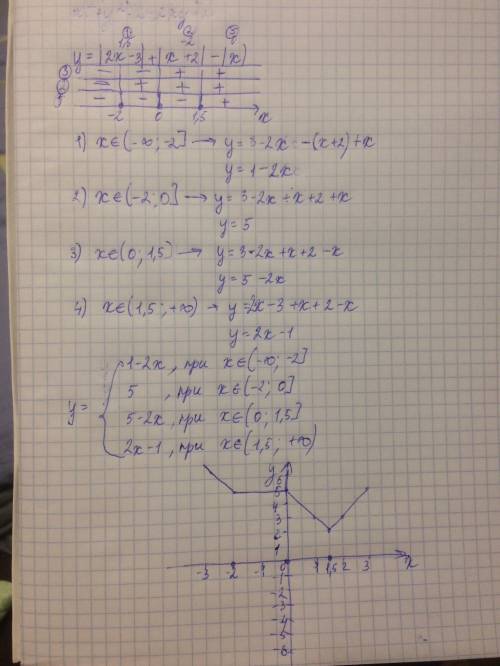 ① ② ③
1,5 -2
y = |2x - 3| + |x + 2| - |x|
③ - - + +
② - + + +
- - - +
-2 0 1,5 x
1) x∈(-∞; -2] → y = 3-2x -(x+2)+x
y = 1-2x
2) x∈(-2; 0] → y = 3-2x + x+2 + x
y = 5
3) x∈(0; 1,5] → y = 3-2x+x+2-x
y = 5-2x
4) x∈(1,5; +∞) → y = 2x-3+x+2-x
y = 2x-1
y = { 1-2x, при x∈(-∞; -2]
5, при x∈(-2; 0]
5-2x, при x∈(0; 1,5]
2x-1, при x∈(1,5; +∞)
y
6
5
4
3
2
1
-3 -2 -1 0 1 1,5 2 3 x
-1
-2
-3
-4
-5
-6